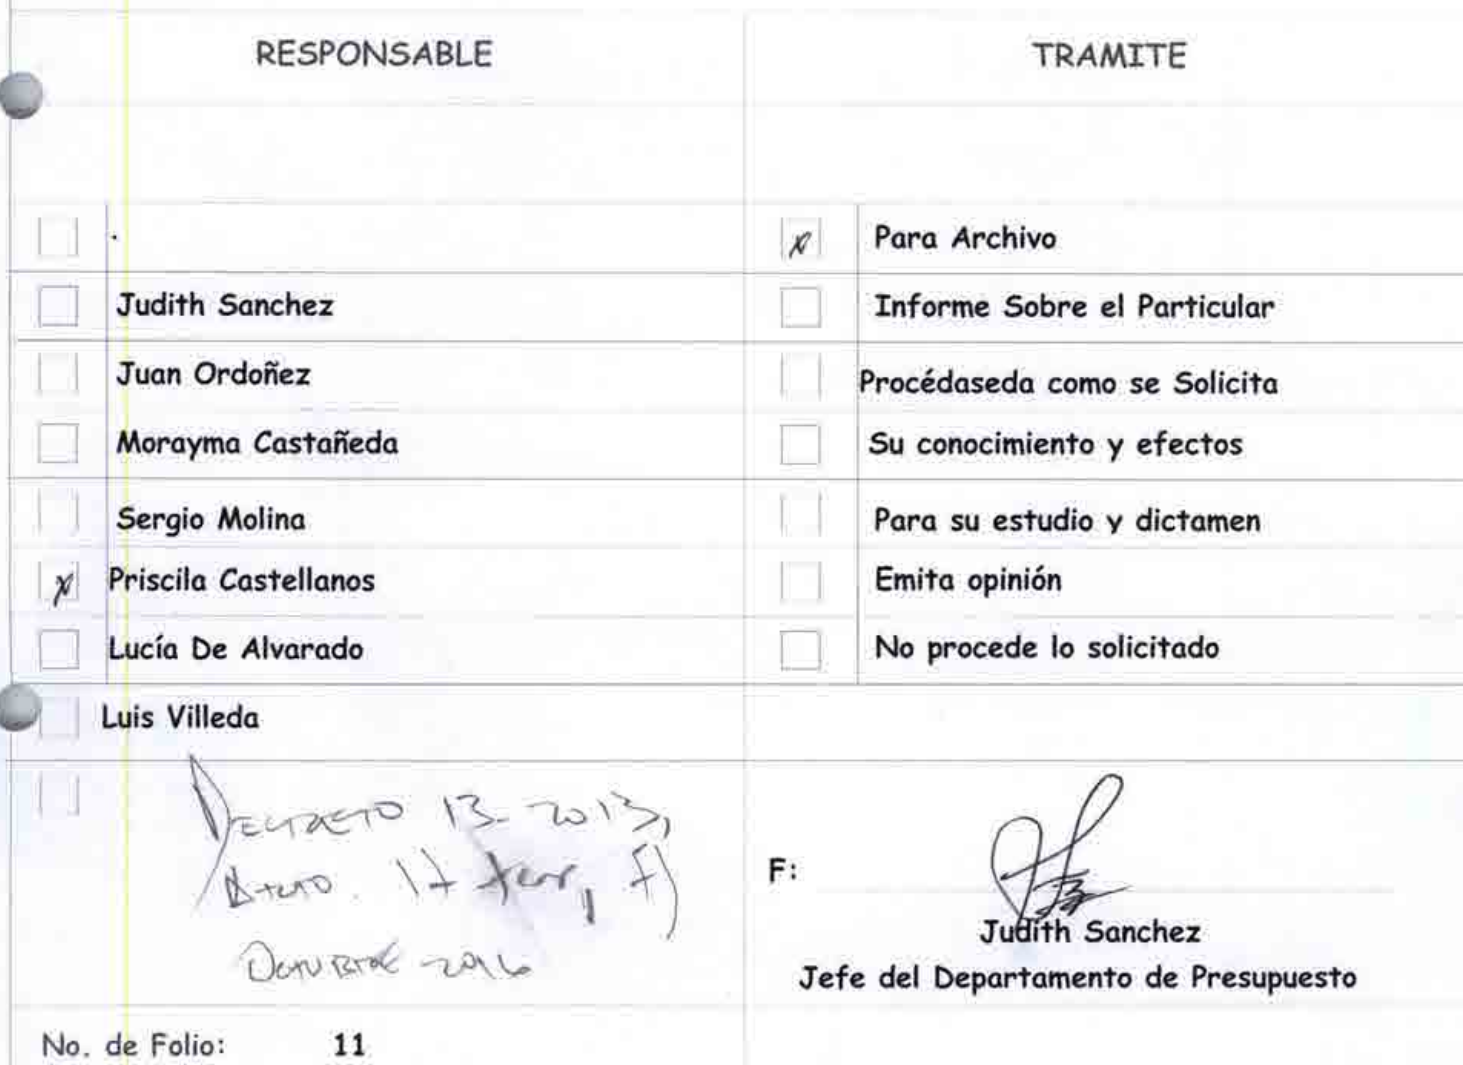 RESPONSABLE TRAMITE
Para Archivo
Judith Sanchez Informe Sobre el Particular
Juan Ordoñez Procédaseda como se Solicita
Morayma Castañeda Su conocimiento y efectos
Sergio Molina Para su estudio y dictamen
Priscila Castellanos Emita opinión
Lucía De Alvarado No procede lo solicitado
Luis Villeda
DECRETO 13-2013,
17 ter, f)
OCTUBRE 2016
F:
Judith Sanchez
Jefe del Departamento de Presupuesto
No. de Folio: 11